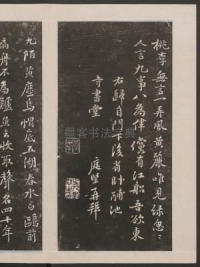 桃李無言一再風黃鸝唯見綠怱〻
人言九事八為律儻有江船吾欲東
右歸自門下後省卧酺池
寺書堂
庭堅再拜
九陌黃塵烏帽底五湖春水白鷗前
扁舟不為鱸魚去收取聲名四十年